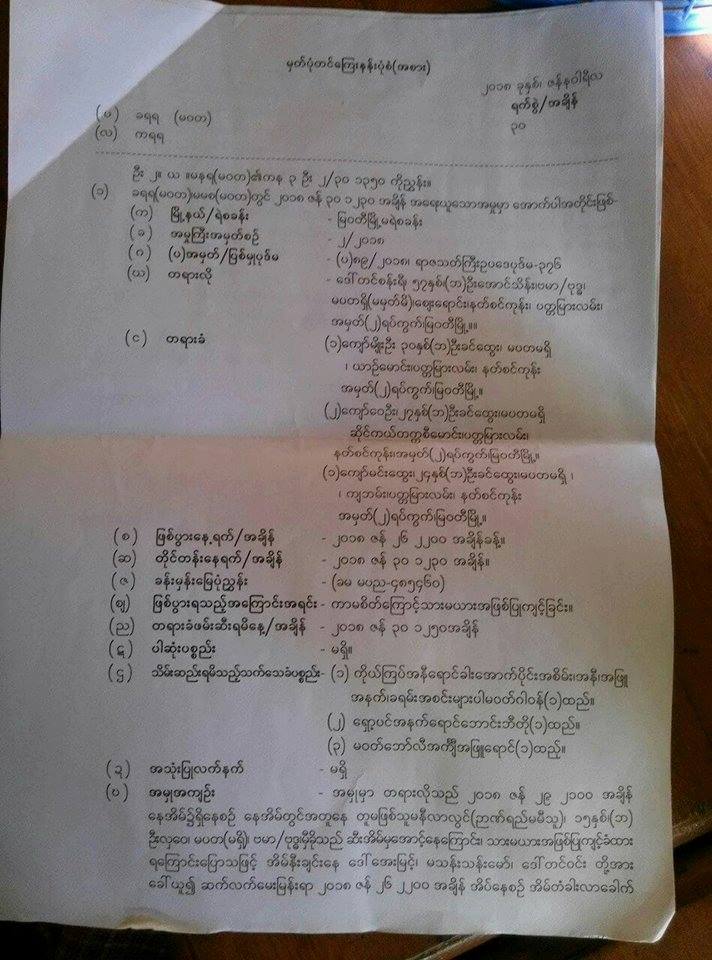 မှတ်ပုံတင်ကြေးနန်းပုံစံ(အစား)
၂၀၁၈ ခုနှစ်၊ ဇန်နဝါရီလ
ရက်စွဲ/အချိန်
(ပ) ခရရ (မဝတ)
၃၀
(လ) ကရရ
ဦး ၂။ ယ ။မနရ(မဝတ)၏ကန ၃ ဦး ၂/၃၀ ၁၃၅၀ ကိုညွှန်း။
(၁) ခရရ(မဝတ)မမစ(မဝတ)တွင် ၂၀၁၈ ဇန် ၃၀ ၁၂၃၀ အချိန် အရေးယူသောအမှုမှာ အောက်ပါအတိုင်းဖြစ်-
(က) မြို့နယ်/ရဲစခန်း - မြဝတီမြို့မရဲစခန်း
(ခ) အမှုကြီးအမှတ်စဉ် - ၂/၂၀၁၈
(ဂ) (ပ)အမှတ်/ပြစ်မှုပုဒ်မ - (ပ)၈၉/၂၀၁၈၊ ရာဇသတ်ကြီးဥပဒေပုဒ်မ-၃၇၆
(ဃ) တရားလို - ဒေါ်တင်စန်းရီ၊ ၅၇နှစ်၊(ဘ)ဦးအောင်သိန်း၊ဗမာ/ဗုဒ္ဓ၊
မပတရှိ(မမှတ်မိ)ဈေးရောင်း၊နတ်စင်ကုန်း၊ ပတ္တမြားလမ်း၊
အမှတ်(၂)ရပ်ကွက်၊မြဝတီမြို့။။
(င) တရားခံ (၁)ကျော်မျိုးဦး ၃၀နှစ်(ဘ)ဦးခင်ထွေး၊ မပတမရှိ
၊ ယာဉ်မောင်း၊ပတ္တမြားလမ်း၊ နတ်စင်ကုန်း
အမှတ်(၂)ရပ်ကွက်၊မြဝတီမြို့။
(၂)ကျော်ဝေဦး၊၂၇နှစ်(ဘ)ဦးခင်ထွေး၊မပတမရှိ
ဆိုင်ကယ်တက္ကစီမောင်း၊ပတ္တမြားလမ်း၊
နတ်စင်ကုန်း၊အမှတ်(၂)ရပ်ကွက်၊မြဝတီမြို့။
(၁)ကျော်မင်းထွေး၊၂၄နှစ်(ဘ)ဦးခင်ထွေး၊မပတမရှိ ၊
၊ ကျဘမ်း၊ပတ္တမြားလမ်း၊ နတ်စင်ကုန်း
အမှတ်(၂)ရပ်ကွက်၊မြဝတီမြို့။
(စ) ဖြစ်ပွားနေ့ရက်/အချိန် - ၂၀၁၈ ဇန် ၂၆ ၂၂၀၀ အချိန်ခန့်။
(ဆ) တိုင်တန်းနေ့ရက်/အချိန် - ၂၀၁၈ ဇန် ၃၀ ၁၂၃၀ အချိန်။
(ဇ) ခန်းမှန်းမြေပုံညွှန်း - (ခမ မပည-၄၈၅၄၆၀)
(ဈ) ဖြစ်ပွားရသည့်အကြောင်းအရင်း - ကာမစိတ်ကြောင့်သားမယားအဖြစ်ပြုကျင့်ခြင်း။
(ည) တရားခံဖမ်းဆီးရမိနေ့/အချိန် - ၂၀၁၈ ဇန် ၃၀ ၁၂၅၀အချိန်
(ဋ) ပါဆုံးပစ္စည်း - မရှိ။
(ဌ) သိမ်းဆည်းရမိသည့်သက်သေခံပစ္စည်း- (၁) ကိုယ်ကြပ်အနီရောင်ခါးအောက်ပိုင်းအစိမ်း၊အနီ၊အဖြူ
အနက်၊ခရမ်းအစင်းများပါမဝတ်ဂါဝန်(၁)ထည်။
(၂) ရှော့ပင်အနက်ရောင်ဘောင်းဘီတို(၁)ထည်။
(၃) မဝတ်ဘော်လီအင်္ကျီအဖြူရောင်(၁)ထည့်။
(ဍ) အသုံးပြုလက်နက် - မရှိ
(ဎ) အမှုအကျဉ်း - အမှုမှာ တရားလိုသည် ၂၀၁၈ ဇန် ၂၉ ၂၁၀၀ အချိန်
နေအိမ်၌ရှိနေစဉ် နေအိမ်တွင်အတူနေ တူမဖြစ်သူမနီလာလွင်(ဉာဏ်ရည်မမီသူ)၊ ၁၅နှစ်(ဘ)
ဦးလှဝေ၊ မပတ(မရှိ)၊ ဗမာ/ဗုဒ္ဓမှီခိုသည် ဆီးအိမ်မှအောင့်နေကြောင်း၊ သားမယားအဖြစ်ပြုကျင့်ခံထား
ရကြောင်းပြောသဖြင့် အိမ်နီးချင်းနေ ဒေါ်အေးမြင့်၊ မသန်းသန်းမော်၊ ဒေါ်တင်ဝင်း တို့အား
ခေါ်ယူ၍ ဆက်လက်မေးမြန်းရာ ၂၀၁၈ ဇန် ၂၆ ၂၂၀၀ အချိန် အိပ်နေစဉ် အိမ်တံခါးလာခေါက်